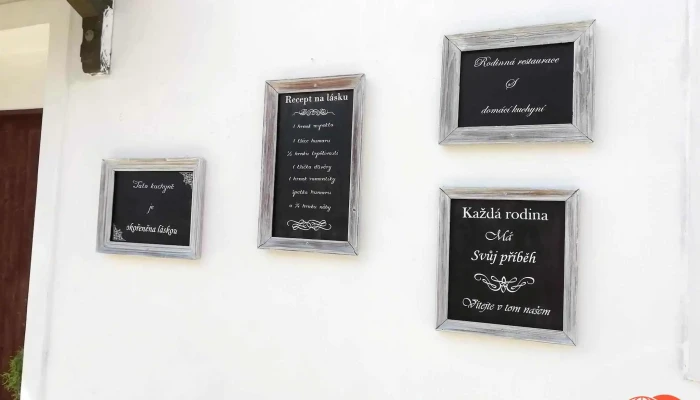 Tato kuchyně
je
okořeněna láskou
Recept na lásku
1 hrnek
1 lžíce humoru
1 lžička důvěry
1 hrnek romantiky
špetka humoru
a ¼ hrnku něhy
Rodinná restaurace
S
domácí kuchyní
Každá rodina
Má
Svůj příběh
Vítejte v tom našem